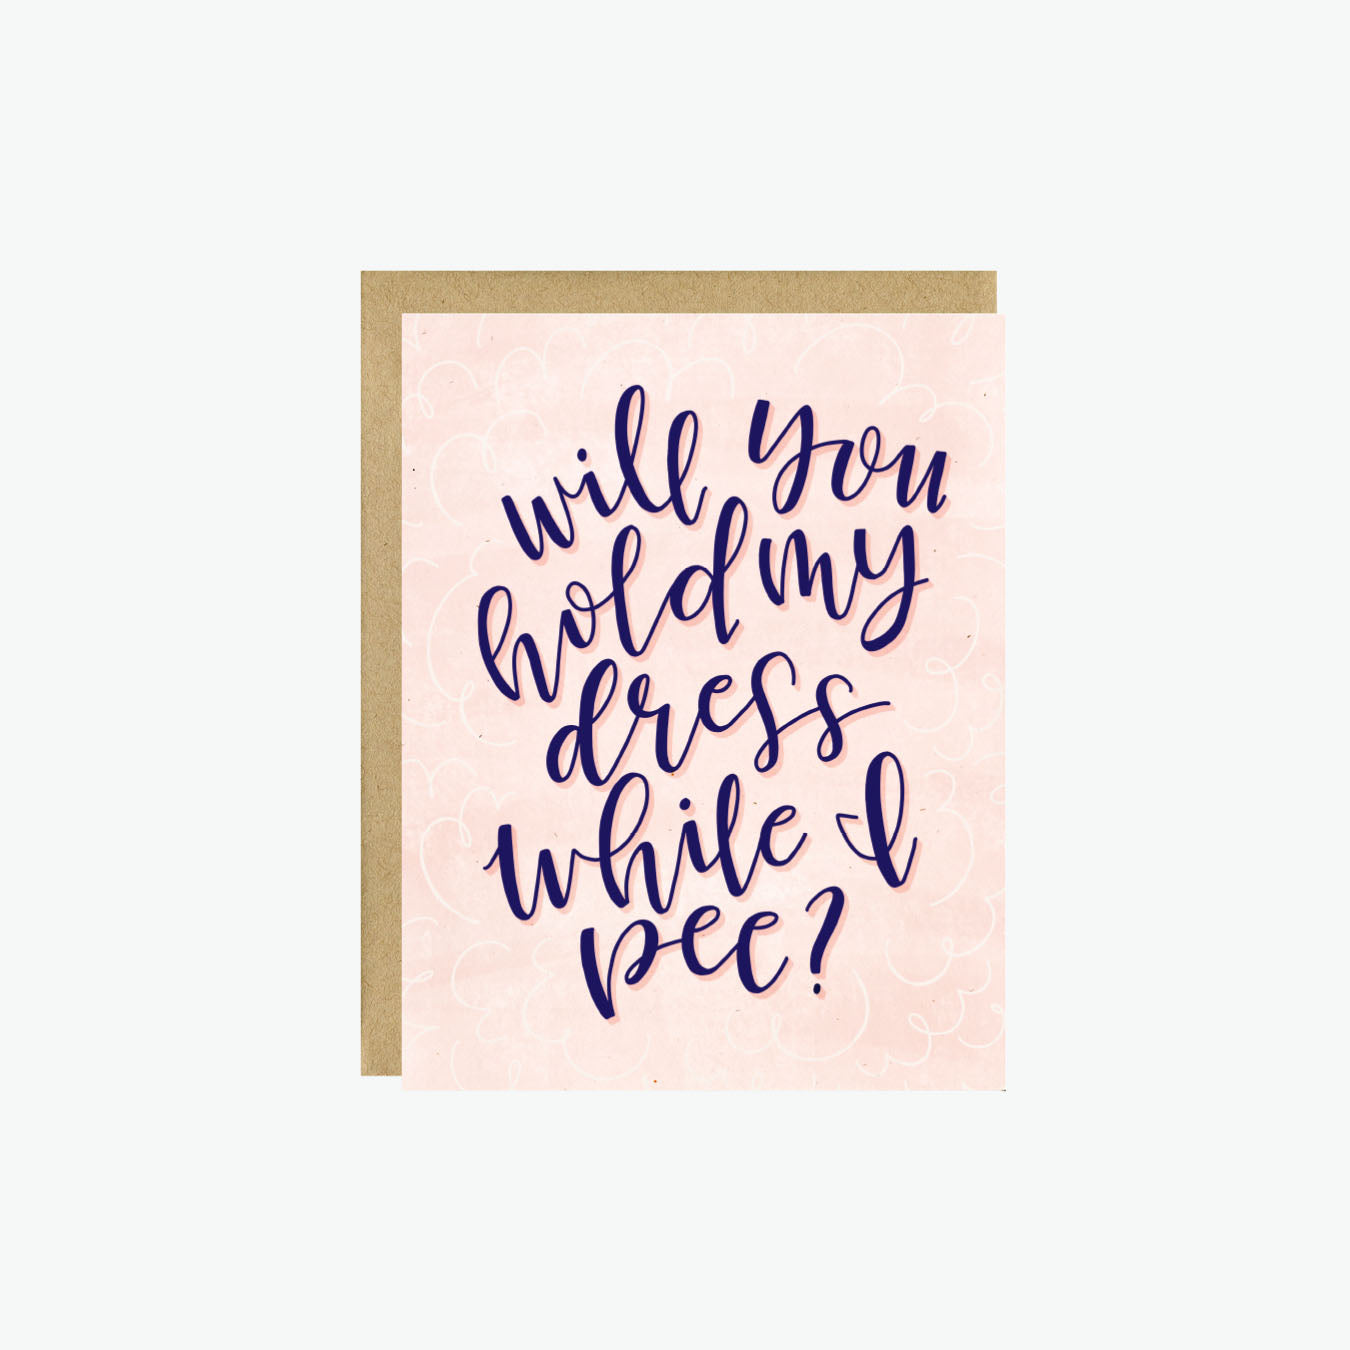 will you
hold my
dress
while I
pee?